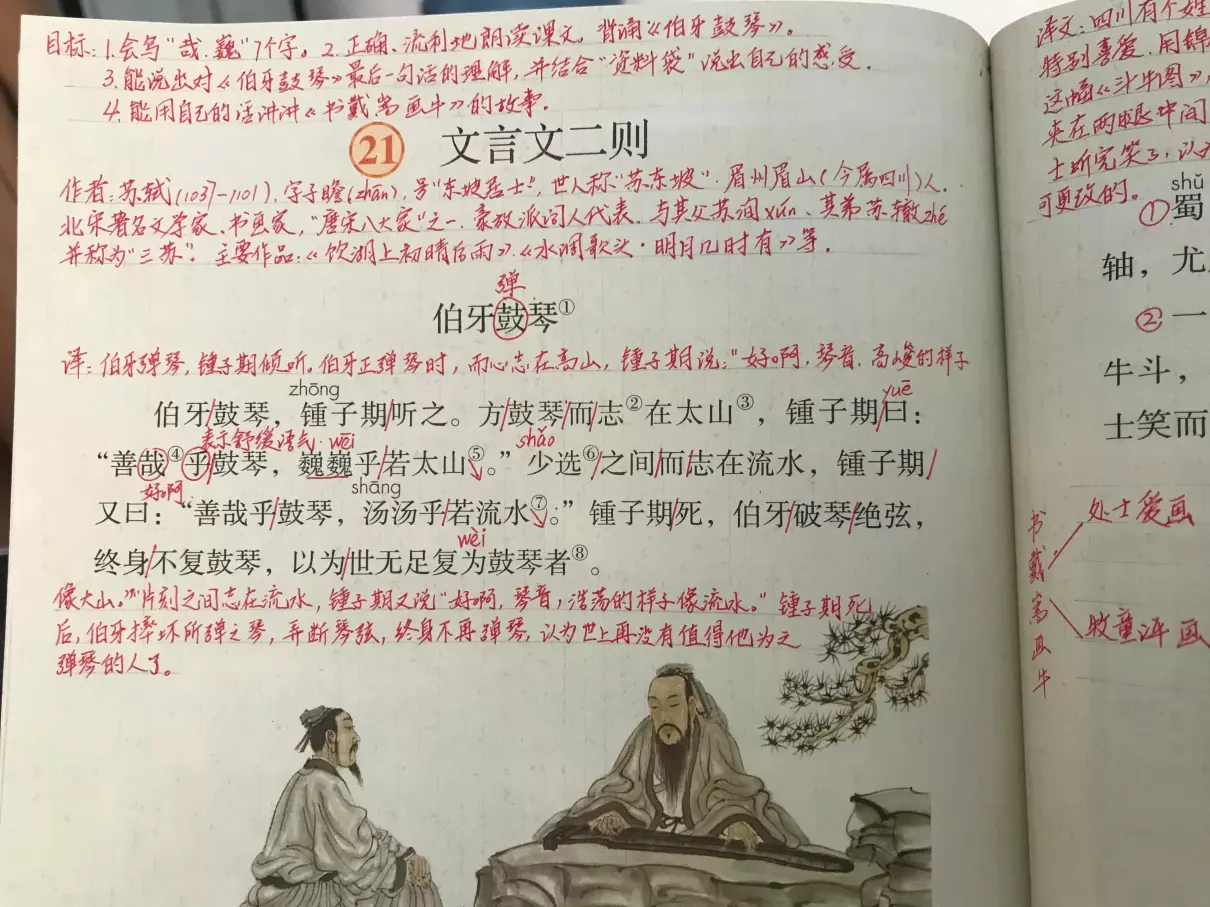 目标:1.会写"哉、巍"7个字。2.正确、流利地朗读课文,背诵《伯牙鼓琴》。
3.能说出对《伯牙鼓琴》最后一句话的理解,并结合"资料袋"说出自己的感受.
4.能用自己的话讲讲《书戴嵩画牛》的故事.
21 文言文二则
作者:苏轼(1037-1101),字子瞻(zhān),号"东坡居士",世人称"苏东坡".眉州眉山(今属四川)人.
北宋著名文学家、书画家,"唐宋八大家"之一.豪放派词人代表.与其父苏洵xún、其弟苏辙zhé
并称为"三苏".主要作品:《饮湖上初晴后雨》.《水调歌头·明月几时有》等.
弹
伯牙鼓琴①
译:伯牙弹琴,锺子期倾听。伯牙正弹琴时,而心志在高山,锺子期说:"好啊,琴音,高峻的样子
zhōng
yuē
伯牙/鼓琴,锺子期/听之。方/鼓琴/而/志②在太山③,锺子期/曰:
表示舒缓语气 wēi shǎo
“善哉④乎/鼓琴,巍巍乎/若太山⑤。”少选⑥/之间/而/志在流水,锺子期/
好啊 shāng
又曰:“善哉乎/鼓琴,汤汤乎/若流水⑦。”锺子期/死,伯牙/破琴/绝弦,
wèi
终身/不复鼓琴,以为/世无足复为鼓琴者⑧。
像大山。"片刻之间志在流水,锺子期又说"好啊,琴音,浩荡的样子像流水。"锺子期死
后,伯牙摔坏所弹之琴,弄断琴弦,终身不再弹琴,认为世上再没有值得他为之
弹琴的人了。
译文:四川有个姓
特别喜爱.用锦
这幅《斗牛图》,
夹在两眼中间
士听完笑了,认为
可更改的。
shǔ
①蜀
轴,尤
②一
牛斗,
士笑而
书戴嵩画牛
处士爱画
牧童评画